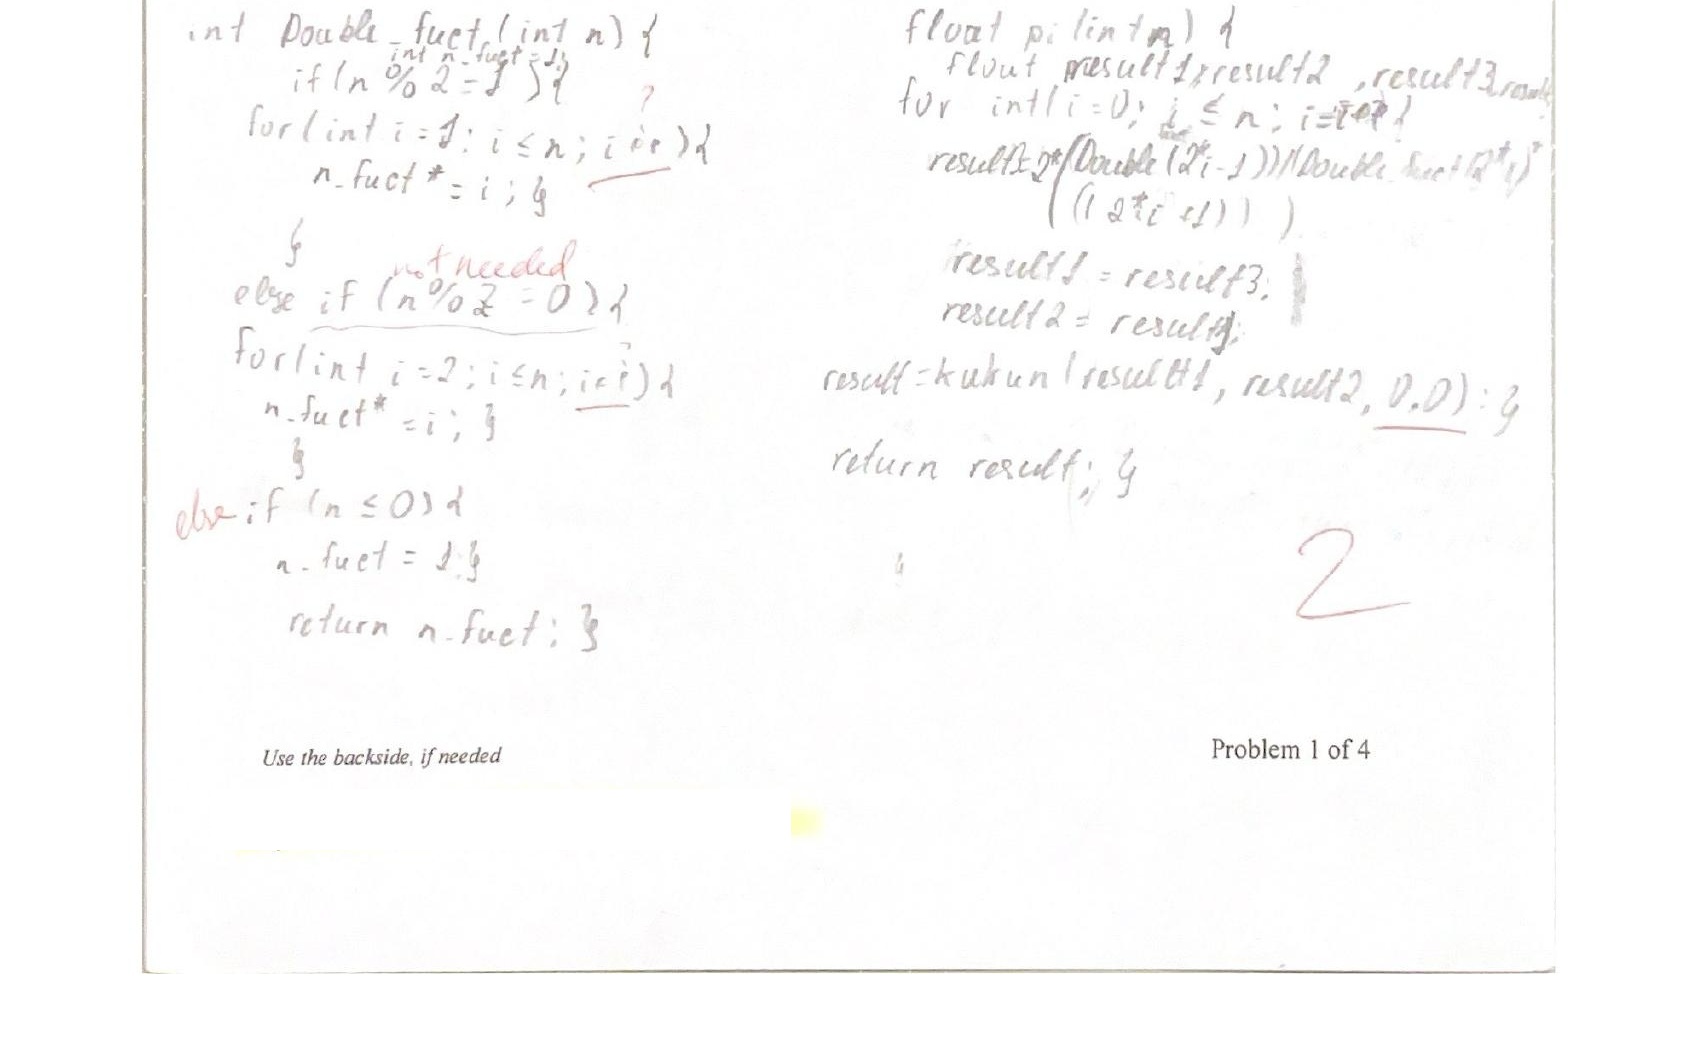 int Double_fuct (int n) {
int n_fuct = 1;
if (n % 2 = 1) {
?
for (int i = 1; i ≤ n; i++) {
n_fuct *= i; }
}
not needed
else if (n % 2 = 0) {
for (int i = 2; i ≤ n; i++) {
n_fuct *= i; }
}
else if (n ≤ 0) {
n_fuct = 1; }
return n_fuct; }
float pi (int n) {
float result1, result2, result3,
for int (i = 0; i ≤ n; {
2*(Double (2*i-1))/(Double_fuct(2*i)*
((2*i+1)))
result1 = result3;
result2 =
result = kukun (result1, result2, 0.0); }
return result; }
2
Use the backside, if needed
Problem 1 of 4